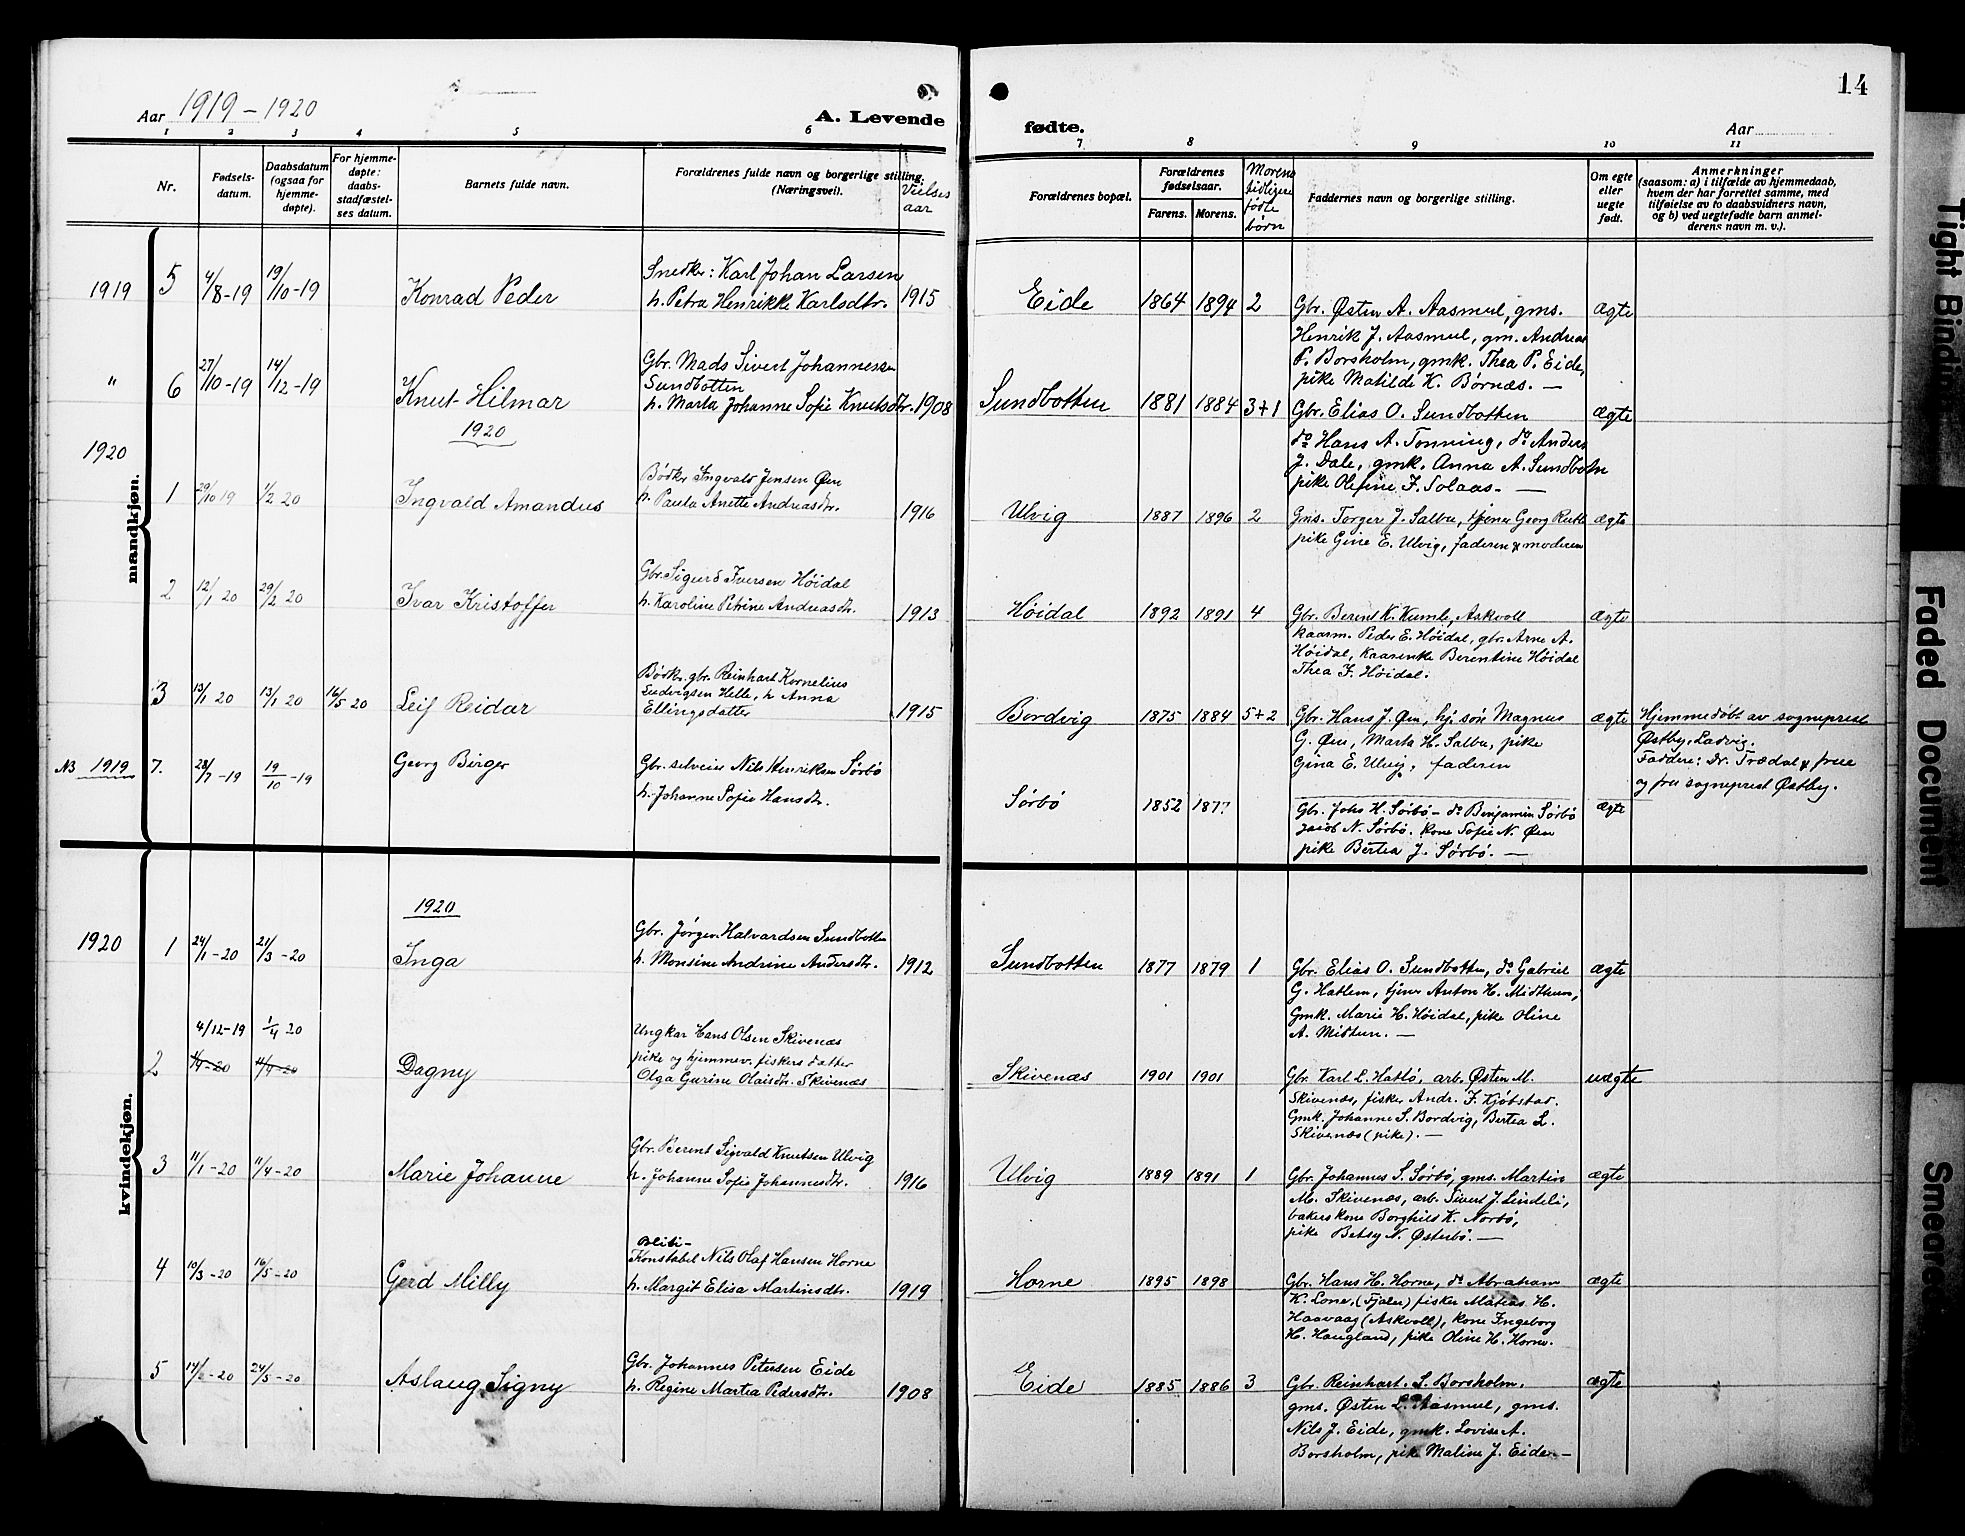 Aar 1919 - 1920
A. Levende
1 2 3 4 5 6
Nr.
Fødsels-
datum.
Daabsdatum
(ogsaa for
hjemme-
døpte).
For hjemme-
døpte:
daabs-
stadfæstel-
ses datum.
Barnets fulde navn.
Forældrenes fulde navn og borgerlige stilling.
(Næringsvei).
Vielses
aar
mandkjøn.
1919 5 4/8-19 19/10-19 Konrad Peder
Snedker: Karl Johan Larsen
h. Petra Henrikke Karlsdtr. 1915
" 6 27/10-19 14/12-19 Knut Hilmar
Gbr. Mads Sivert Johannessen
Sundbotten
h. Marta Johanne Sofie Knutsdtr. 1908
1920
1920
1 29/10 19 1/2 20 Ingvald Amandus
Bødker Ingvald Jensen Øen
h. Paula Anette Andreasdtr. 1916
2 12/1 20 29/2 20 Ivar Kristoffer
Gbr. Sigurd Iversen Høidal
h. Karoline Petrine Andreasdtr. 1913
3 13/1 20 13/1 20 16/5 20 Leif Reidar
Bødk. gbr. Reinhart Kornelius
Ludvigsen Helle, h. Anna
Ellingsdatter 1915
NB 1919 7. 28/7-19 19/10-19 Georg Birger
Gbr. selveier Nils Henriksen Sørbø
h. Johanne Sofie Hansdtr.
kvindekjøn.
1920
1920 1 24/1-20 21/3-20 Inga
Gbr. Jørgen Halvardsen Sundbotten
h. Monsine Andrine Andersdtr. 1912
4/12-19 1/4 20
2 Dagny
Ungkar Hans Olsen Skivenæs
pike og hjemmev. fiskers datter
Olga Gurine Olaisdtr. Skivenæs
3 11/1-20 11/4-20 Marie Johanne
Gbr. Berent Sigvald Knutsen Ulvig
h. Johanne Sofie Johannesdtr. 1916
4 10/3-20 16/5-20 Gerd Milly
Konstabel Nils Olaf Hansen Horne
h. Margit Elisa Martinsdtr. 1919
5 24/5-20 Aslaug Signy
Gbr. Johannes Petersen Eide
h. Regine Martea Pedersdtr. 1908
14
fødte.
Aar
7 8 9 10 11
Forældrenes bopæl.
Forældrenes
fødselsaar.
Farens. Morens.
Morens
tidligere
fødte
børn
Faddernes navn og borgerlige stilling.
Om egte
eller
uegte
født.
Anmerkninger
(saasom: a) i tilfælde av hjemmedaab,
hvem der har forrettet samme, med
tilføielse av to daabsvidners navn,
og b) ved uegtefødte barn anmel-
derens navn m. v.).
Eide 1864 1894 2 Gbr. Østen A. Aasmul, gms. ægte
Henrik J. Aasmul, gm. Andreas
P. Borsholm, gmk. Thea P. Eide,
pike Matilde K. Børnæs. —
Sundbotten 1881 1884 3+1 Gbr. Elias O. Sundbotten ægte
do Hans A. Tonning, do Anders
J. Dale, gmk. Anna A. Sundbotn
pike Olefine F. Solaas. —
Ulvig 1887 1896 2 Gms. Torger J. Salbu, tjener Georg ægte
pike Gine E. Ulvig, faderen & moderen
Høidal 1892 1891 4 Gbr. Berent K. Kumle, Askvoll ægte
kaarm. Peder E. Høidal, gbr. Arne A.
Høidal, kaarenke Berentine Høidal
Thea F. Høidal.
Bordvig 1875 1884 5+2 Gbr. Hans J. Øen, hj. søn Magnus ægte
G. Øen, Marta H. Salbu, pike
Gina E. Ulvig, faderen
Hjemmedøbt av sogneprest
Østby, Ladvig.
Faddere: Dr. Trædal & frue
og fru sogneprest Østby.
Sørbø 1852 187? Gbr. Johs H. Sørbø - do Benjamin Sørbø ægte
Jacob N. Sørbø. kone Sofie N. Øen
pike Bertea J. Sørbø. —
Sundbotten 1877 1879 1 Gbr. Elias O. Sundbotten, do Gabriel ægte
G. Hatlem, tjener Anton H. Midthun,
Gmk. Marie H. Høidal, pike Oline
A. Midtun. —
Skivenæs 1901 1901 Gbr. Karl L. Hatlø, arb. Østen M. uægte
Skivenæs, fisker Andr. F. Kjøbstad.
Gmk. Johanne S. Bordvig, Bertea L.
Skivenæs (pike). —
Ulvig 1889 1891 1 Gbr. Johannes S. Sørbø, gms. Martin ægte
M. Skivenæs, arb. Sivert J. Lindeli,
bakers kone Borghild K. Norbø,
pike Betsy N. Østerbø. —
Horne 1895 1898 Gbr. Hans H. Horne, do Abraham ægte
K. Lone, (Fjaler) fisker Matias H.
Haavaag (Askvoll), kone Ingeborg
H. Haugland, pike Oline H. Horne.
Eide 1885 1886 3 Gbr. Reinhart S. Borsholm. ægte
gms. Østen L. Aasmul, gms.
Nils J. Eide, gmk. Lovise A.
Borsholm, pike Maline J. Eide —
Tight Binding
Faded Document
Smeared